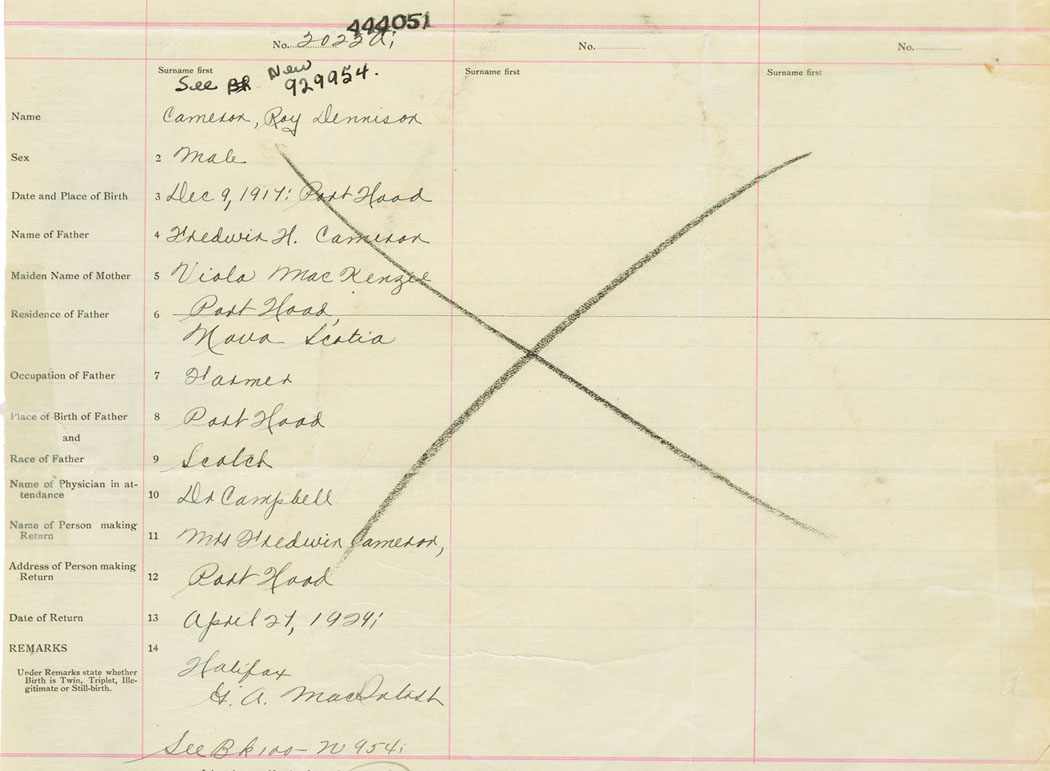 444051
No. 2022a; No. No.
Surname first Surname first Surname first
See New
929954.
Name Cameron, Roy Dennison
Sex 2 Male
Date and Place of Birth 3 Dec 9, 1917: Port Hood
Name of Father 4 Fredwin H. Cameron
Maiden Name of Mother 5 Viola MacKenzie
Residence of Father 6 Port Hood,
Nova Scotia
Occupation of Father 7 Farmer
Place of Birth of Father 8 Port Hood
and
Race of Father 9 Scotch
Name of Physician in at-
tendance 10 Dr Campbell
Name of Person making
Return 11 Mrs Fredwin Cameron,
Address of Person making
Return 12 Port Hood
Date of Return 13 April 21, 1924;
REMARKS 14
Under Remarks state whether
Birth is Twin, Triplet, Ille-
gitimate or Still-birth.
Halifax
G. A. MacIntosh
See Bk 100 - N 954;